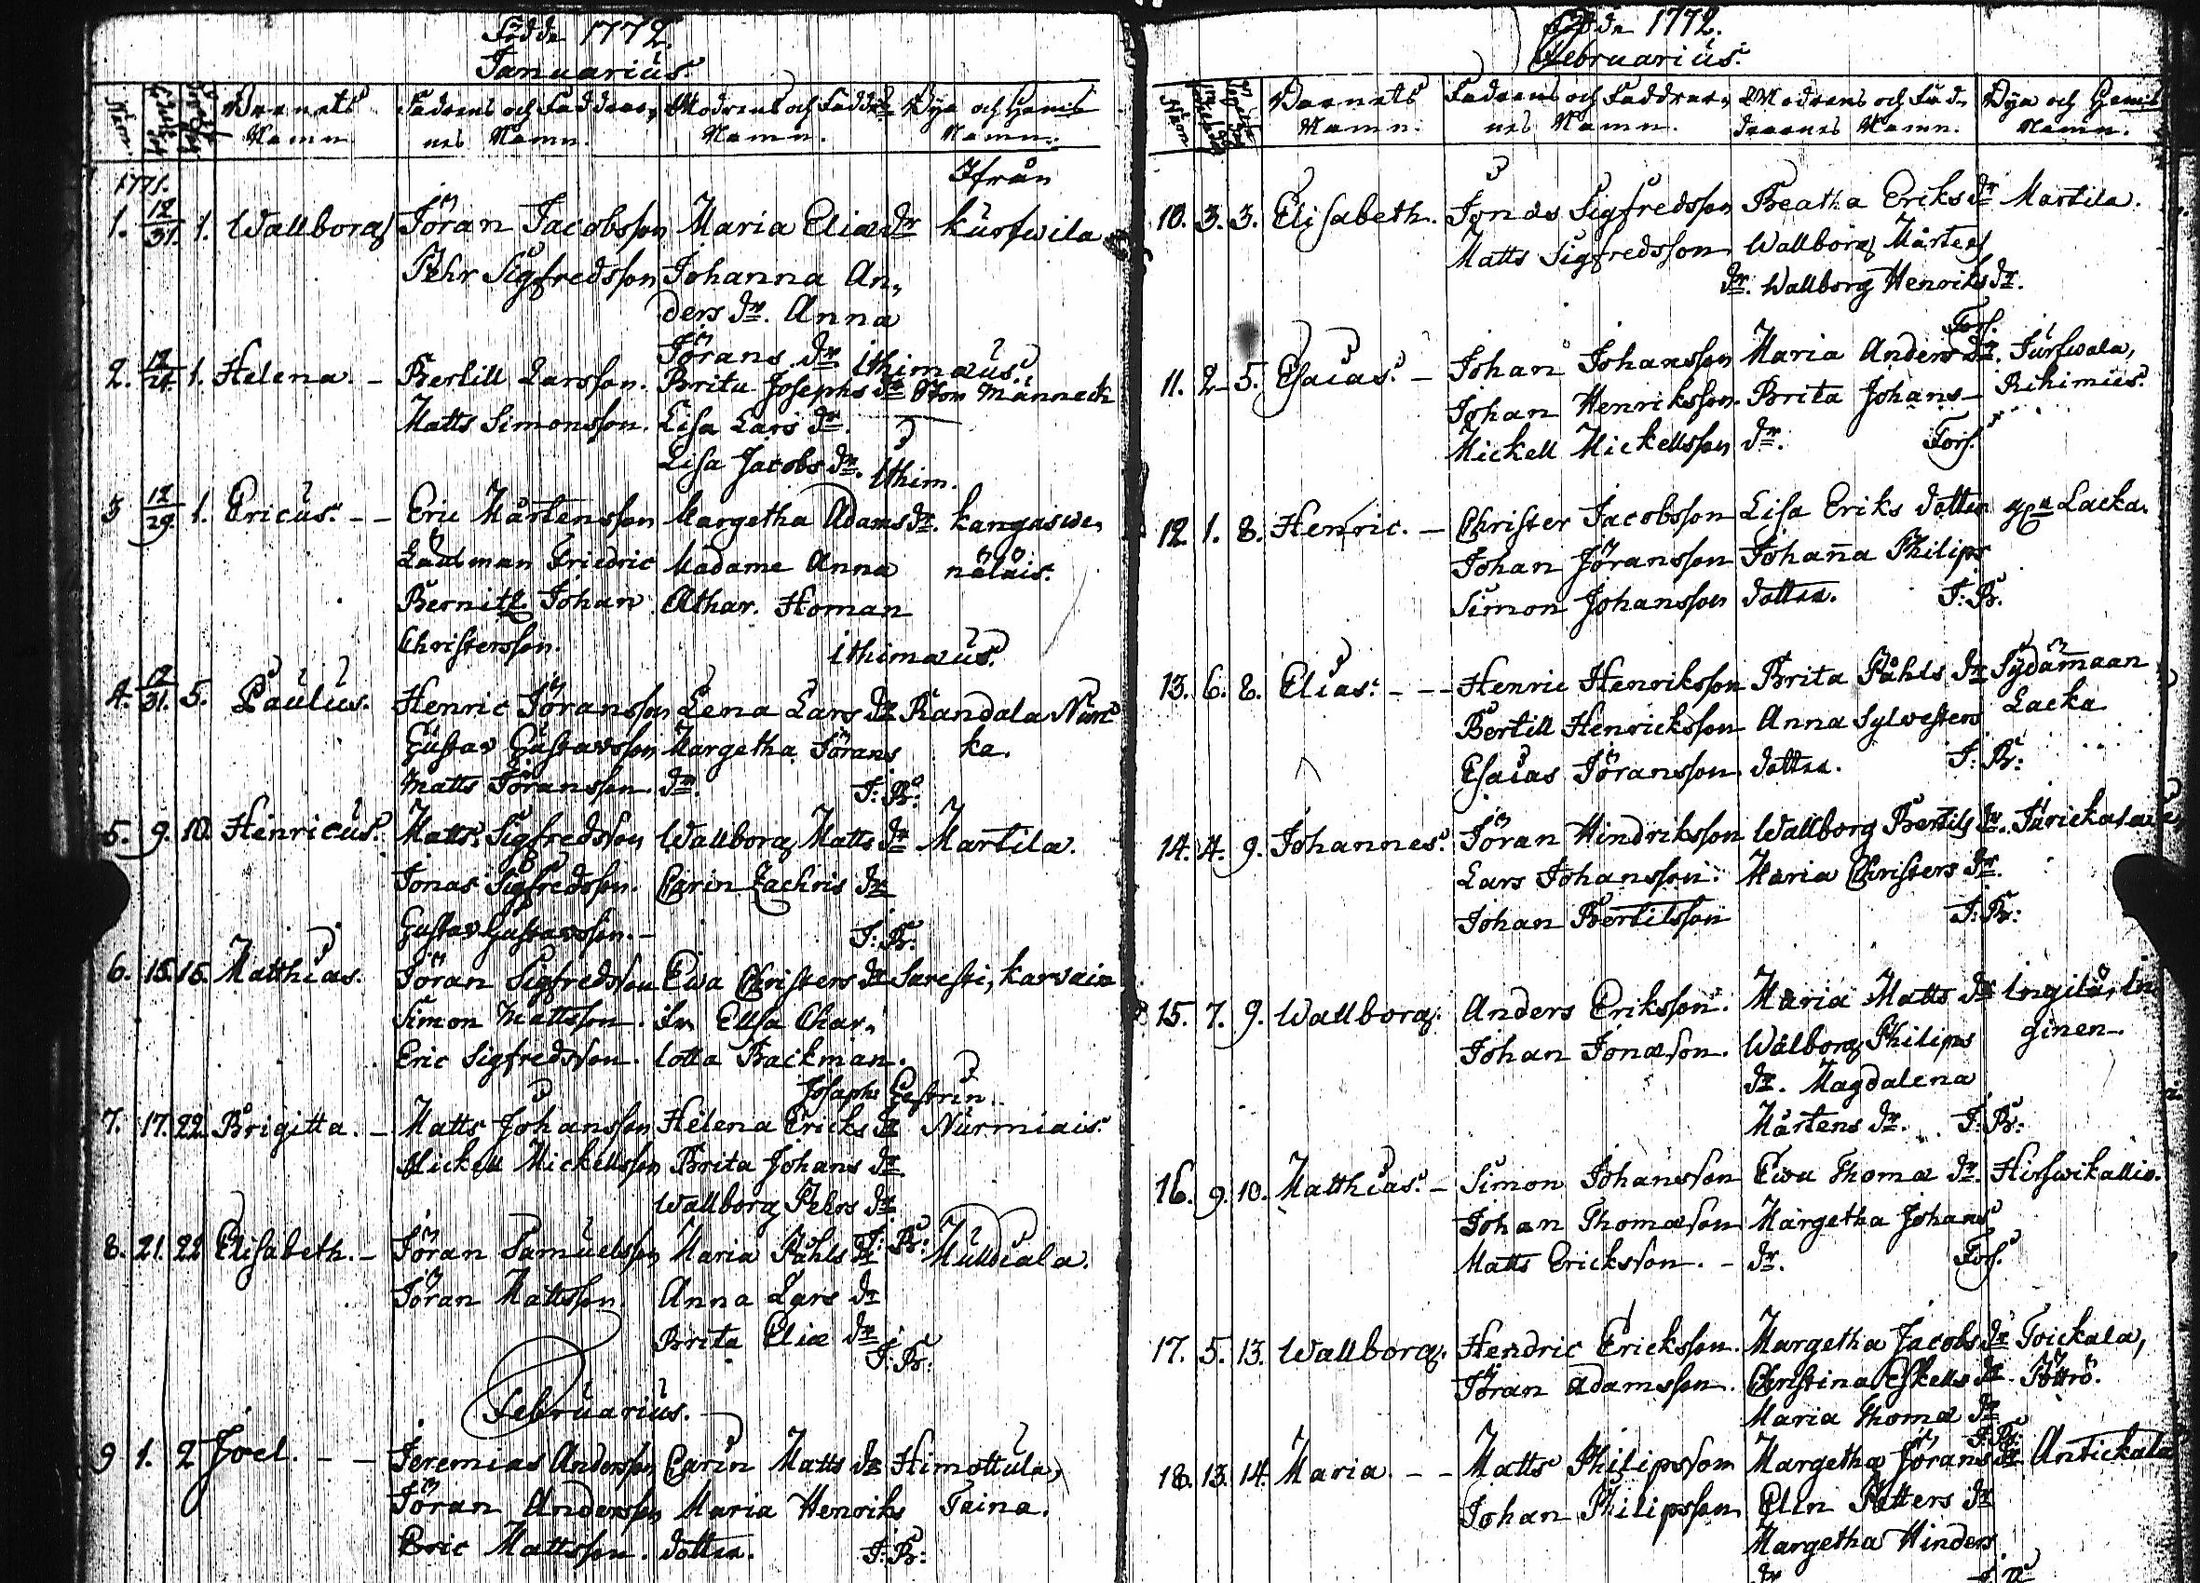 Födde 1772.
Januarius.
Num.
Barnets Namn.
Fadrens och Faddrar, nes Namn.
Modrens och Faddr. Namn.
Bya och Hem. Namn.
1771.
Ifrån
1. 12/31. 1. Wallborg Jöran Jacobsson Maria Eliæ dr Kurfwila
Pehr Sigfredsson Johanna An,
ders dr. Anna
Jörans dr ithimæus.
2. 12/21. 1. Helena. - Bertill Larsson. Brita Josephs dr Män̄neck
Matts Simonsson. Lisa Lars dr.
Lisa Jacobs dr. ithim.
3 12/29. 1. Ericus. - - Eric Mårtensson Margetha Adams dr. Kangaswe,
Friedric Madame Anna näläis.
Bernitz Johan Athar. Homan
Christersson. ithimæus.
4. 12/31. 5. Paulus. Henric Jöransson Lena Lars dr Randala Nun
Gustav Gustavsson Margetha Jörans ka.
Matts Jöransson dr. J: Br:
5. 9. 10. Henricus. Matts Sigfredsson Wallborg Matts dr Martila.
Jonas Sigfredsson. Carin Zachris dr
Gustav Gustavsson. - J: Br:
6. 15. 15. Matthias. Jöran Sigfredsson Ewa Christers dr Saresti, Karvain
Simon Mattsson. Ellsa Char,
Eric Sigfredsson. lotta Backman.
Josaphs Gestrin.
7. 17. 22. Brigitta. - Matts Johansson Helena Ericks dr Nurmiais.
Mickell Mickellsson Brita Johans dr
Wallborg Pehrs dr
J: Br:
8. 21. 22 Elisabeth. - Jöran Samuelsson Maria Påhls dr Mulldiala.
Jöran Mattsson Anna Lars dr
Brita Eliæ dr
J: Br:
Februarius.
9 1. 2 Joel. - - Jeremias Andersson Carin Matts dr Himottula,
Jöran Andersson Maria Henriks Taina.
Eric Mattsson. dotter. J: Br:
Födde 1772.
Februarius.
Num
Barnets Namn.
Fadrens och Faddrar, nes Namn.
Modrens och Fad, drarnes Namn.
Bya och Hem. Namn.
10. 3. 3. Elisabeth. Jonas Sigfredsson Beatha Eriks dr Martila.
Matts Sigfredsson Wallborg Mårtens
dr. Wallborg Henriks dr.
Fors.
11. 2 5. Esaias. - Johan Johansson Maria Anders dr. Turfwala,
Johan Henriksson. Brita Johans- Rihimies.
Mickell Mickellsson dr. Fors.
12. 1. 8. Henric. - Christer Jacobsson Lisa Eriks dotter Lacka.
Johan Jöransson Johan̄a Philips
Simon Johansson dotter. J: Br.
13. 6. 8. Elias. - - Henric Henriksson Brita Påhls dr Sydäm̄aan
Bertill Henricksson Anna Sylvesters Lacka
Esaias Jöransson dotter. J: Br:
14. 4. 9. Johannes. Jöran Hindriksson Wallborg Bertils dr. Tarickala
Lars Johansson. Maria Christers dr.
Johan Bertilsson J: Br:
15. 7. 9. Wallborg. Anders Eriksson. Maria Matts dr Ingilä, In,
Johan Jonæson. Wålborg Philips ginen-
dr. Magdalena
Mårtens dr. J: Br:
16. 9. 10. Matthias. - Simon Johansson Ewa Thomæ dr. Hirfwikallio.
Johan Thomæson Margetha Johans
Matts Erickson. - dr. Fors.
17. 5. 13. Wallborg. Hendric Erickson. Margetha Jacobs dr Toickala,
Jöran Adamsson. Christina Eskells dr Pöttrö.
Maria Thomæ dr
J: Br:
18. 13. 14. Maria. - - Matts Philipsson Margetha Jörans dr Antickala
Johan Philipsson Elin Petters dr
Margetha Hinders
dr